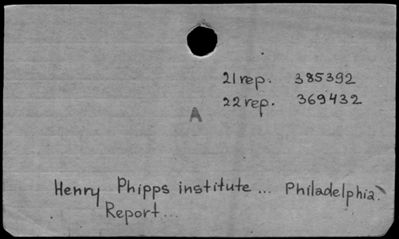 21 rep. 385392
22 rep. 369432
A
Henry Phipps institute ... Philadelphia.
Report ...